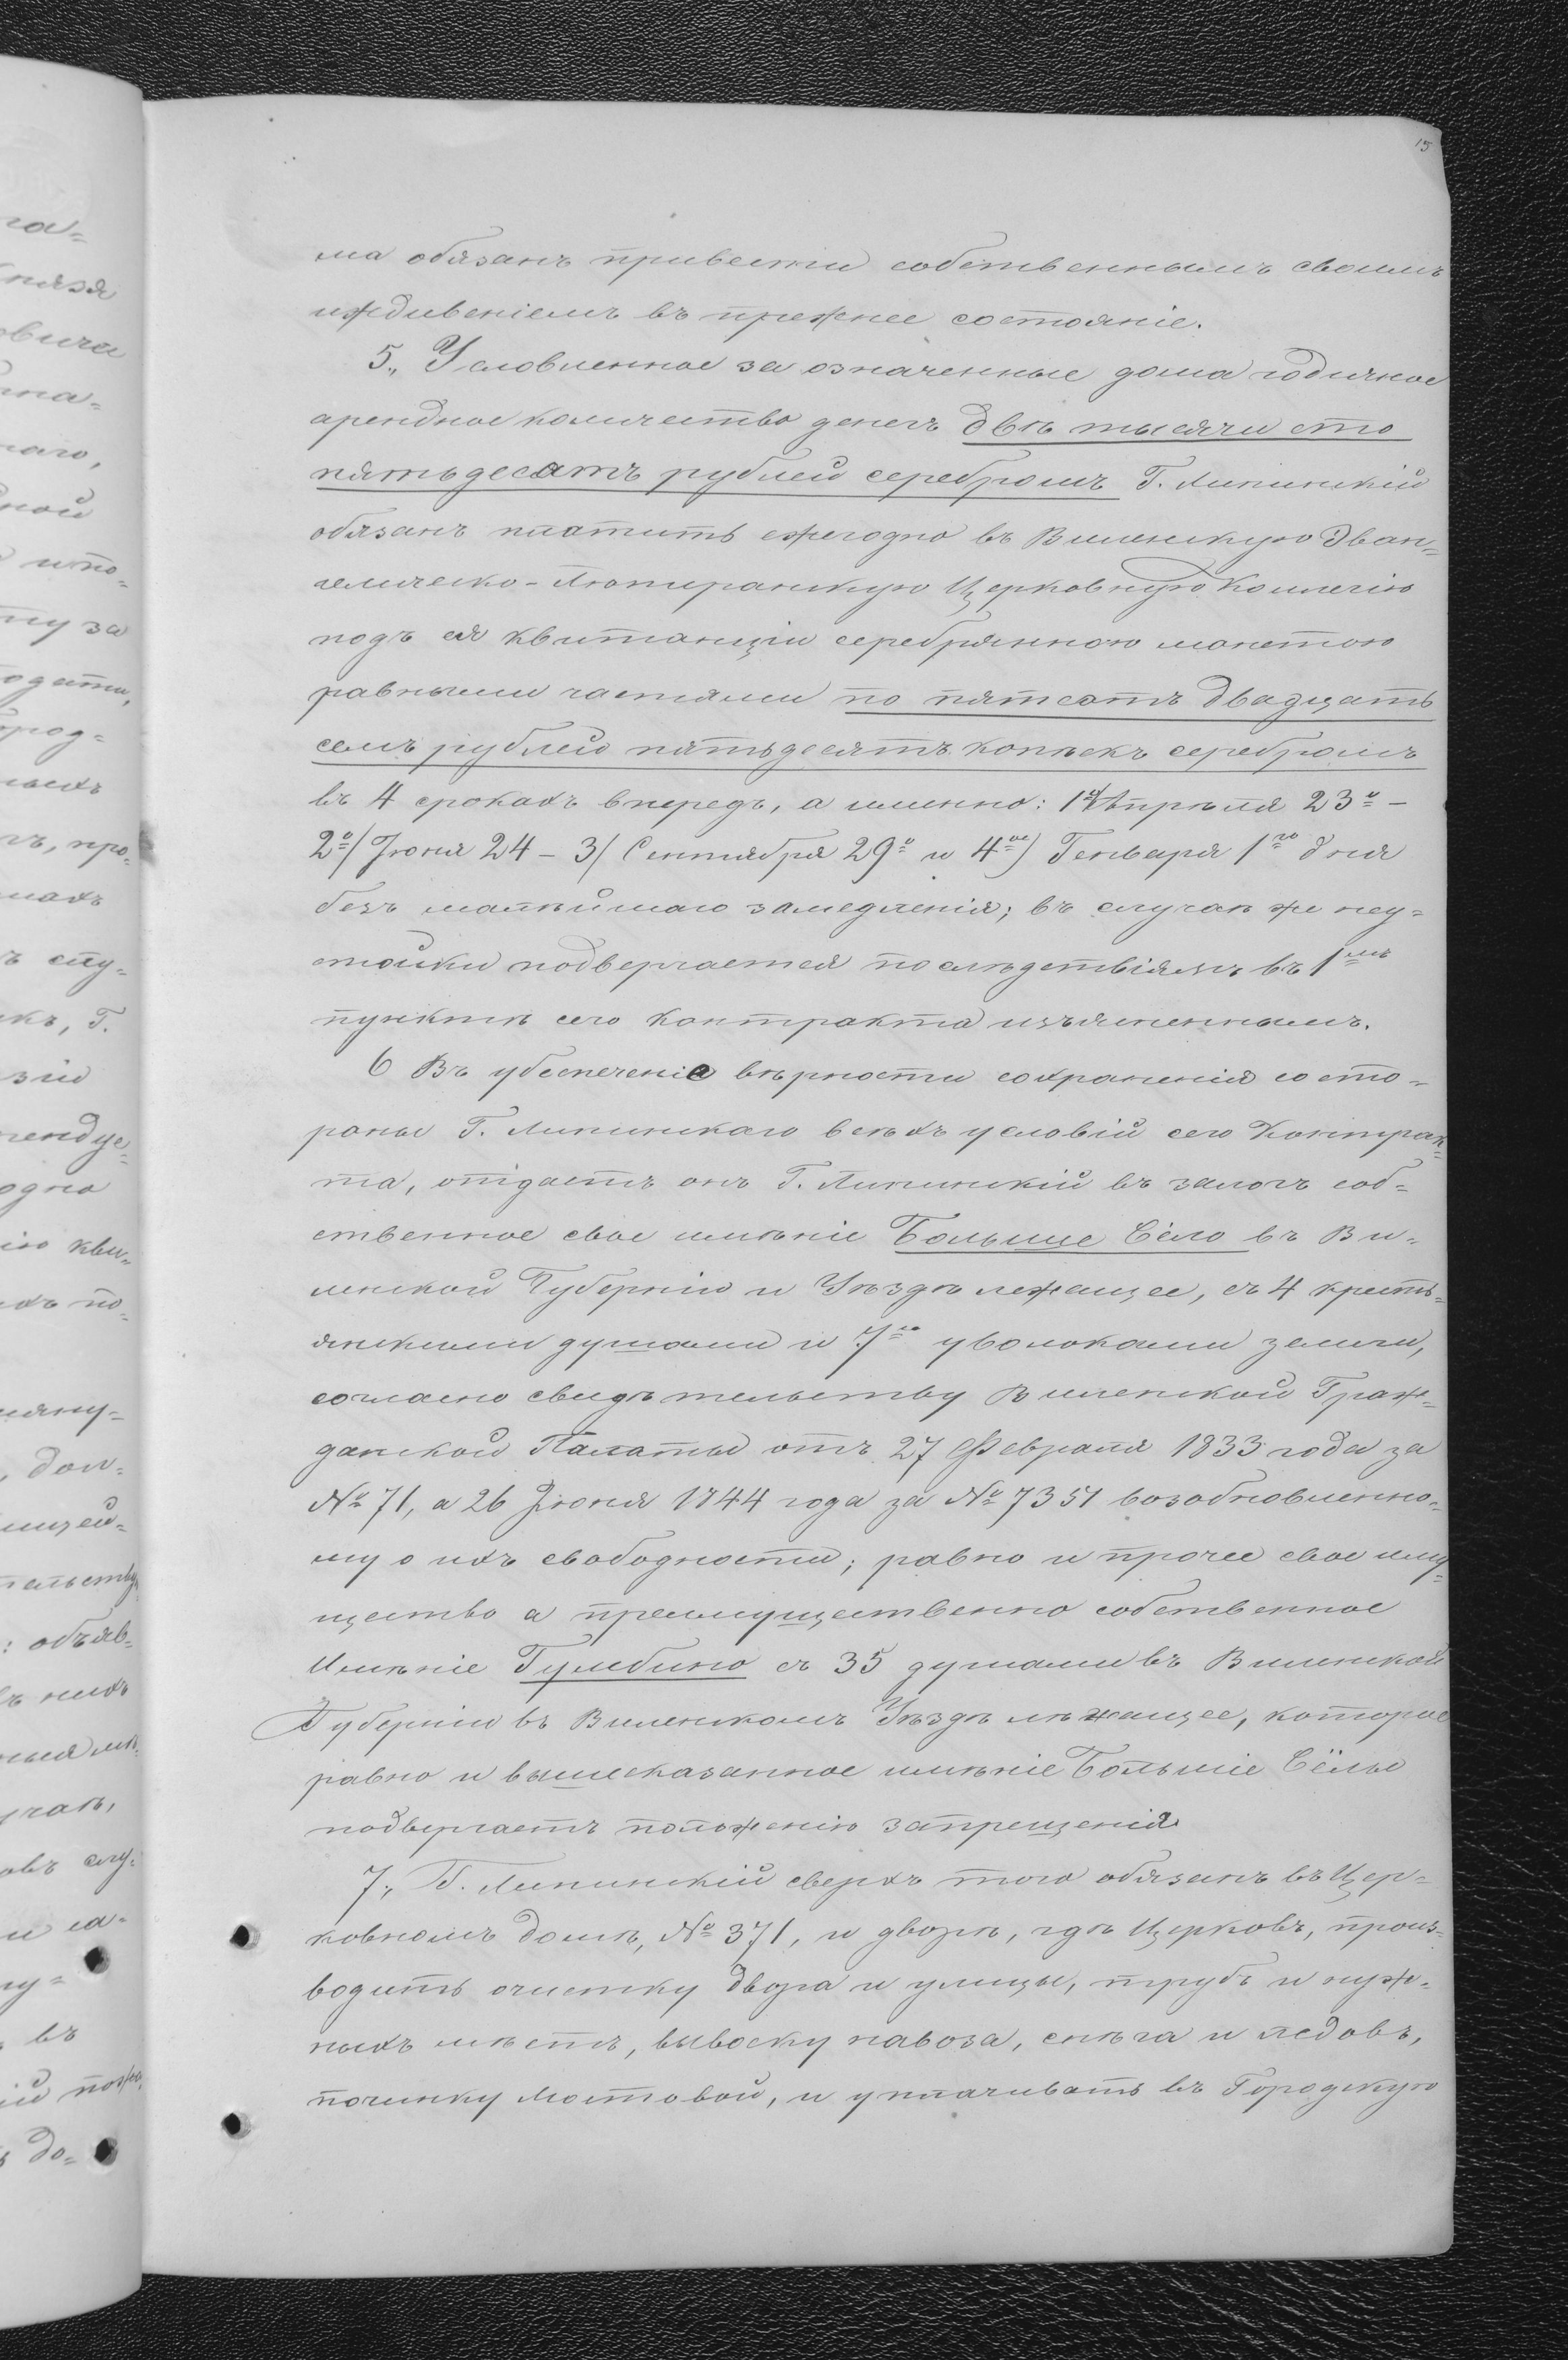 15
ма обязанъ привести собственнымъ своимъ
иждивеніемъ въ прежнее состояніе.
5., Условленное за означенные дома годичное
арендное количество денегъ двѣ тысячи сто
пятьдесятъ рублей серебромъ Г. Липинскій
обязанъ платить ежегодно въ Виленскую Эван=
гелическо-Лютеранскую Церковную Коллегію
подъ ея квитанціи серебрянною монетою
равными частями по пятсотъ двадцать
семъ рублей пятьдесятъ копѣекъ серебромъ
въ 4 срокахъ впередъ, а именно: 1е/ Апрѣля 23о –
2о/ Іюня 24 – 3/ Сентября 29о и 4ое) Генваря 1го дня
безъ малѣйшаго замедленія; въ случаѣ же неу=
стойки подвергается послѣдствіямъ въ 1мъ
пунктѣ сего контракта изъясненнымъ.
6 Въ убеспеченіе вѣрности сохраненія со сто=
роны Г. Липинскаго всѣхъ условій сего Контрак=
та, отдаетъ онъ Г. Липинскій въ залогъ соб=
ственное свое имѣніе Больше Село въ Ви=
ленской Губерніи и Уѣздѣ лежащее, съ 4 кресть=
янскими душами и 7ю уволоками земли,
согласно свидѣтельству Виленской Граж=
данской Палаты отъ 27 Февраля 1833 года за
№ 71, а 26 Іюня 1844 года за № 7351 возобновленно=
му о ихъ свободности; равно и прочее свое иму=
щество а преимущественно собственное
Имѣніе Гулбино съ 35 душами въ Виленской
Губерніи въ Виленскомъ Уѣздѣ лежащее, которое
равно и вышесказанное имѣніе Большіе Сёлы
подвергаетъ положенію запрещенія
7., Г. Липинскій сверхъ того обязанъ въ Цер=
ковномъ домѣ, № 371, и дворѣ, гдѣ Церковь, произ=
водить очистку двора и улицы, трубъ и нуж=
ныхъ мѣстъ, вывоску навоза, снѣга и ледовъ,
починку мостовой, и уплачивать въ Городскую